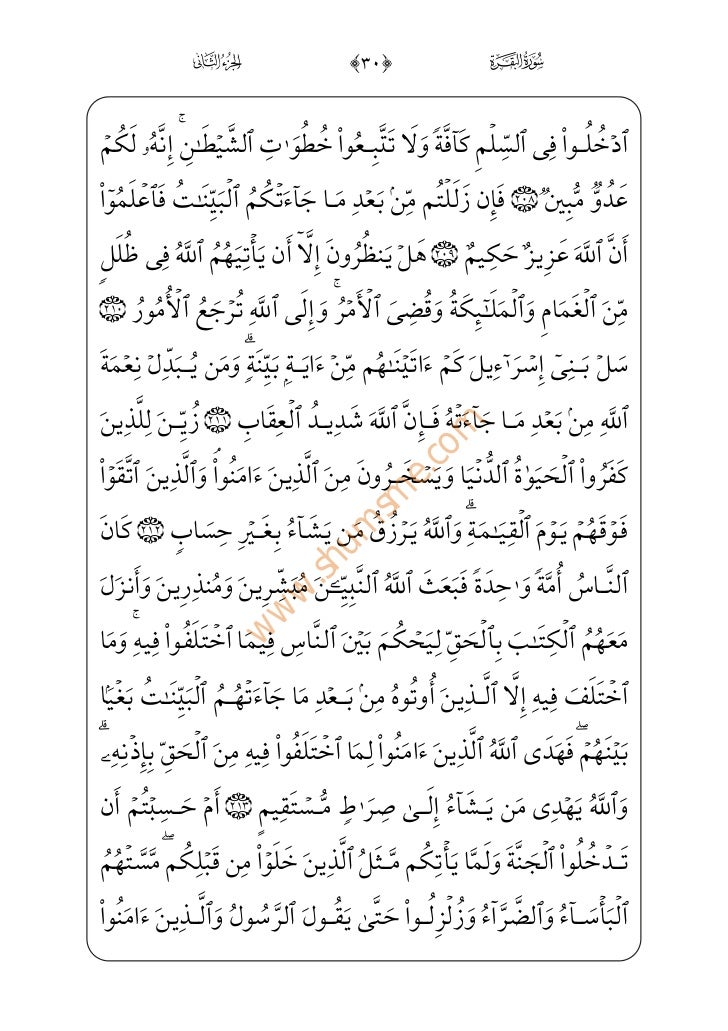 سُورَةُ البَقَرَة ﴿٣٠﴾ الجزءُ الثَّانِي
ٱدۡخُلُواْ فِى ٱلسِّلۡمِ كَآفَّةً وَلَا تَتَّبِعُواْ خُطُوَٰتِ ٱلشَّيۡطَٰنِۚ إِنَّهُۥ لَكُمۡ
عَدُوٌّ مُّبِينٌ ﴿٢٠٨﴾ فَإِن زَلَلۡتُم مِّنۢ بَعۡدِ مَا جَآءَتۡكُمُ ٱلۡبَيِّنَٰتُ فَٱعۡلَمُوٓاْ
أَنَّ ٱللَّهَ عَزِيزٌ حَكِيمٌ ﴿٢٠٩﴾ هَلۡ يَنظُرُونَ إِلَّآ أَن يَأۡتِيَهُمُ ٱللَّهُ فِى ظُلَلٍ
مِّنَ ٱلۡغَمَامِ وَٱلۡمَلَٰٓئِكَةُ وَقُضِىَ ٱلۡأَمۡرُۚ وَإِلَى ٱللَّهِ تُرۡجَعُ ٱلۡأُمُورُ ﴿٢١٠﴾
سَلۡ بَنِىٓ إِسۡرَٰٓءِيلَ كَمۡ ءَاتَيۡنَٰهُم مِّنۡ ءَايَةِۭ بَيِّنَةٍۗ وَمَن يُبَدِّلۡ نِعۡمَةَ
ٱللَّهِ مِنۢ بَعۡدِ مَا جَآءَتۡهُ فَإِنَّ ٱللَّهَ شَدِيدُ ٱلۡعِقَابِ ﴿٢١١﴾ زُيِّنَ لِلَّذِينَ
كَفَرُواْ ٱلۡحَيَوٰةُ ٱلدُّنۡيَا وَيَسۡخَرُونَ مِنَ ٱلَّذِينَ ءَامَنُواْۘ وَٱلَّذِينَ ٱتَّقَوۡاْ
فَوۡقَهُمۡ يَوۡمَ ٱلۡقِيَٰمَةِۗ وَٱللَّهُ يَرۡزُقُ مَن يَشَآءُ بِغَيۡرِ حِسَابٍ ﴿٢١٢﴾ كَانَ
ٱلنَّاسُ أُمَّةً وَٰحِدَةً فَبَعَثَ ٱللَّهُ ٱلنَّبِيِّـۧنَ مُبَشِّرِينَ وَمُنذِرِينَ وَأَنزَلَ
مَعَهُمُ ٱلۡكِتَٰبَ بِٱلۡحَقِّ لِيَحۡكُمَ بَيۡنَ ٱلنَّاسِ فِيمَا ٱخۡتَلَفُواْ فِيهِۚ وَمَا
ٱخۡتَلَفَ فِيهِ إِلَّا ٱلَّذِينَ أُوتُوهُ مِنۢ بَعۡدِ مَا جَآءَتۡهُمُ ٱلۡبَيِّنَٰتُ بَغۡيَۢا
بَيۡنَهُمۡۖ فَهَدَى ٱللَّهُ ٱلَّذِينَ ءَامَنُواْ لِمَا ٱخۡتَلَفُواْ فِيهِ مِنَ ٱلۡحَقِّ بِإِذۡنِهِۦۗ
وَٱللَّهُ يَهۡدِى مَن يَشَآءُ إِلَىٰ صِرَٰطٍ مُّسۡتَقِيمٍ ﴿٢١٣﴾ أَمۡ حَسِبۡتُمۡ أَن
تَدۡخُلُواْ ٱلۡجَنَّةَ وَلَمَّا يَأۡتِكُم مَّثَلُ ٱلَّذِينَ خَلَوۡاْ مِن قَبۡلِكُمۖ مَّسَّتۡهُمُ
ٱلۡبَأۡسَآءُ وَٱلضَّرَّآءُ وَزُلۡزِلُواْ حَتَّىٰ يَقُولَ ٱلرَّسُولُ وَٱلَّذِينَ ءَامَنُواْ
www.shamsme.com